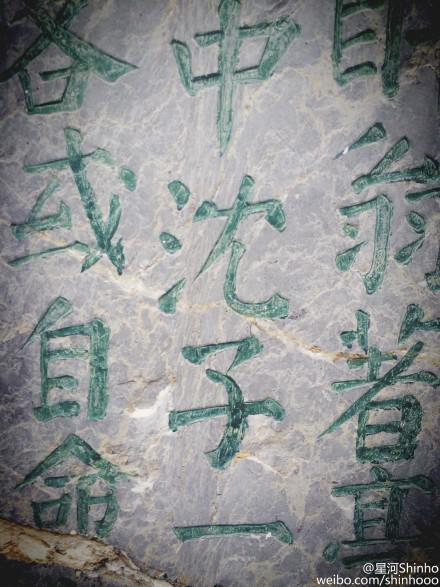 著
中沈子一
各或自命
@星河Shinho
weibo.com/shinhooo